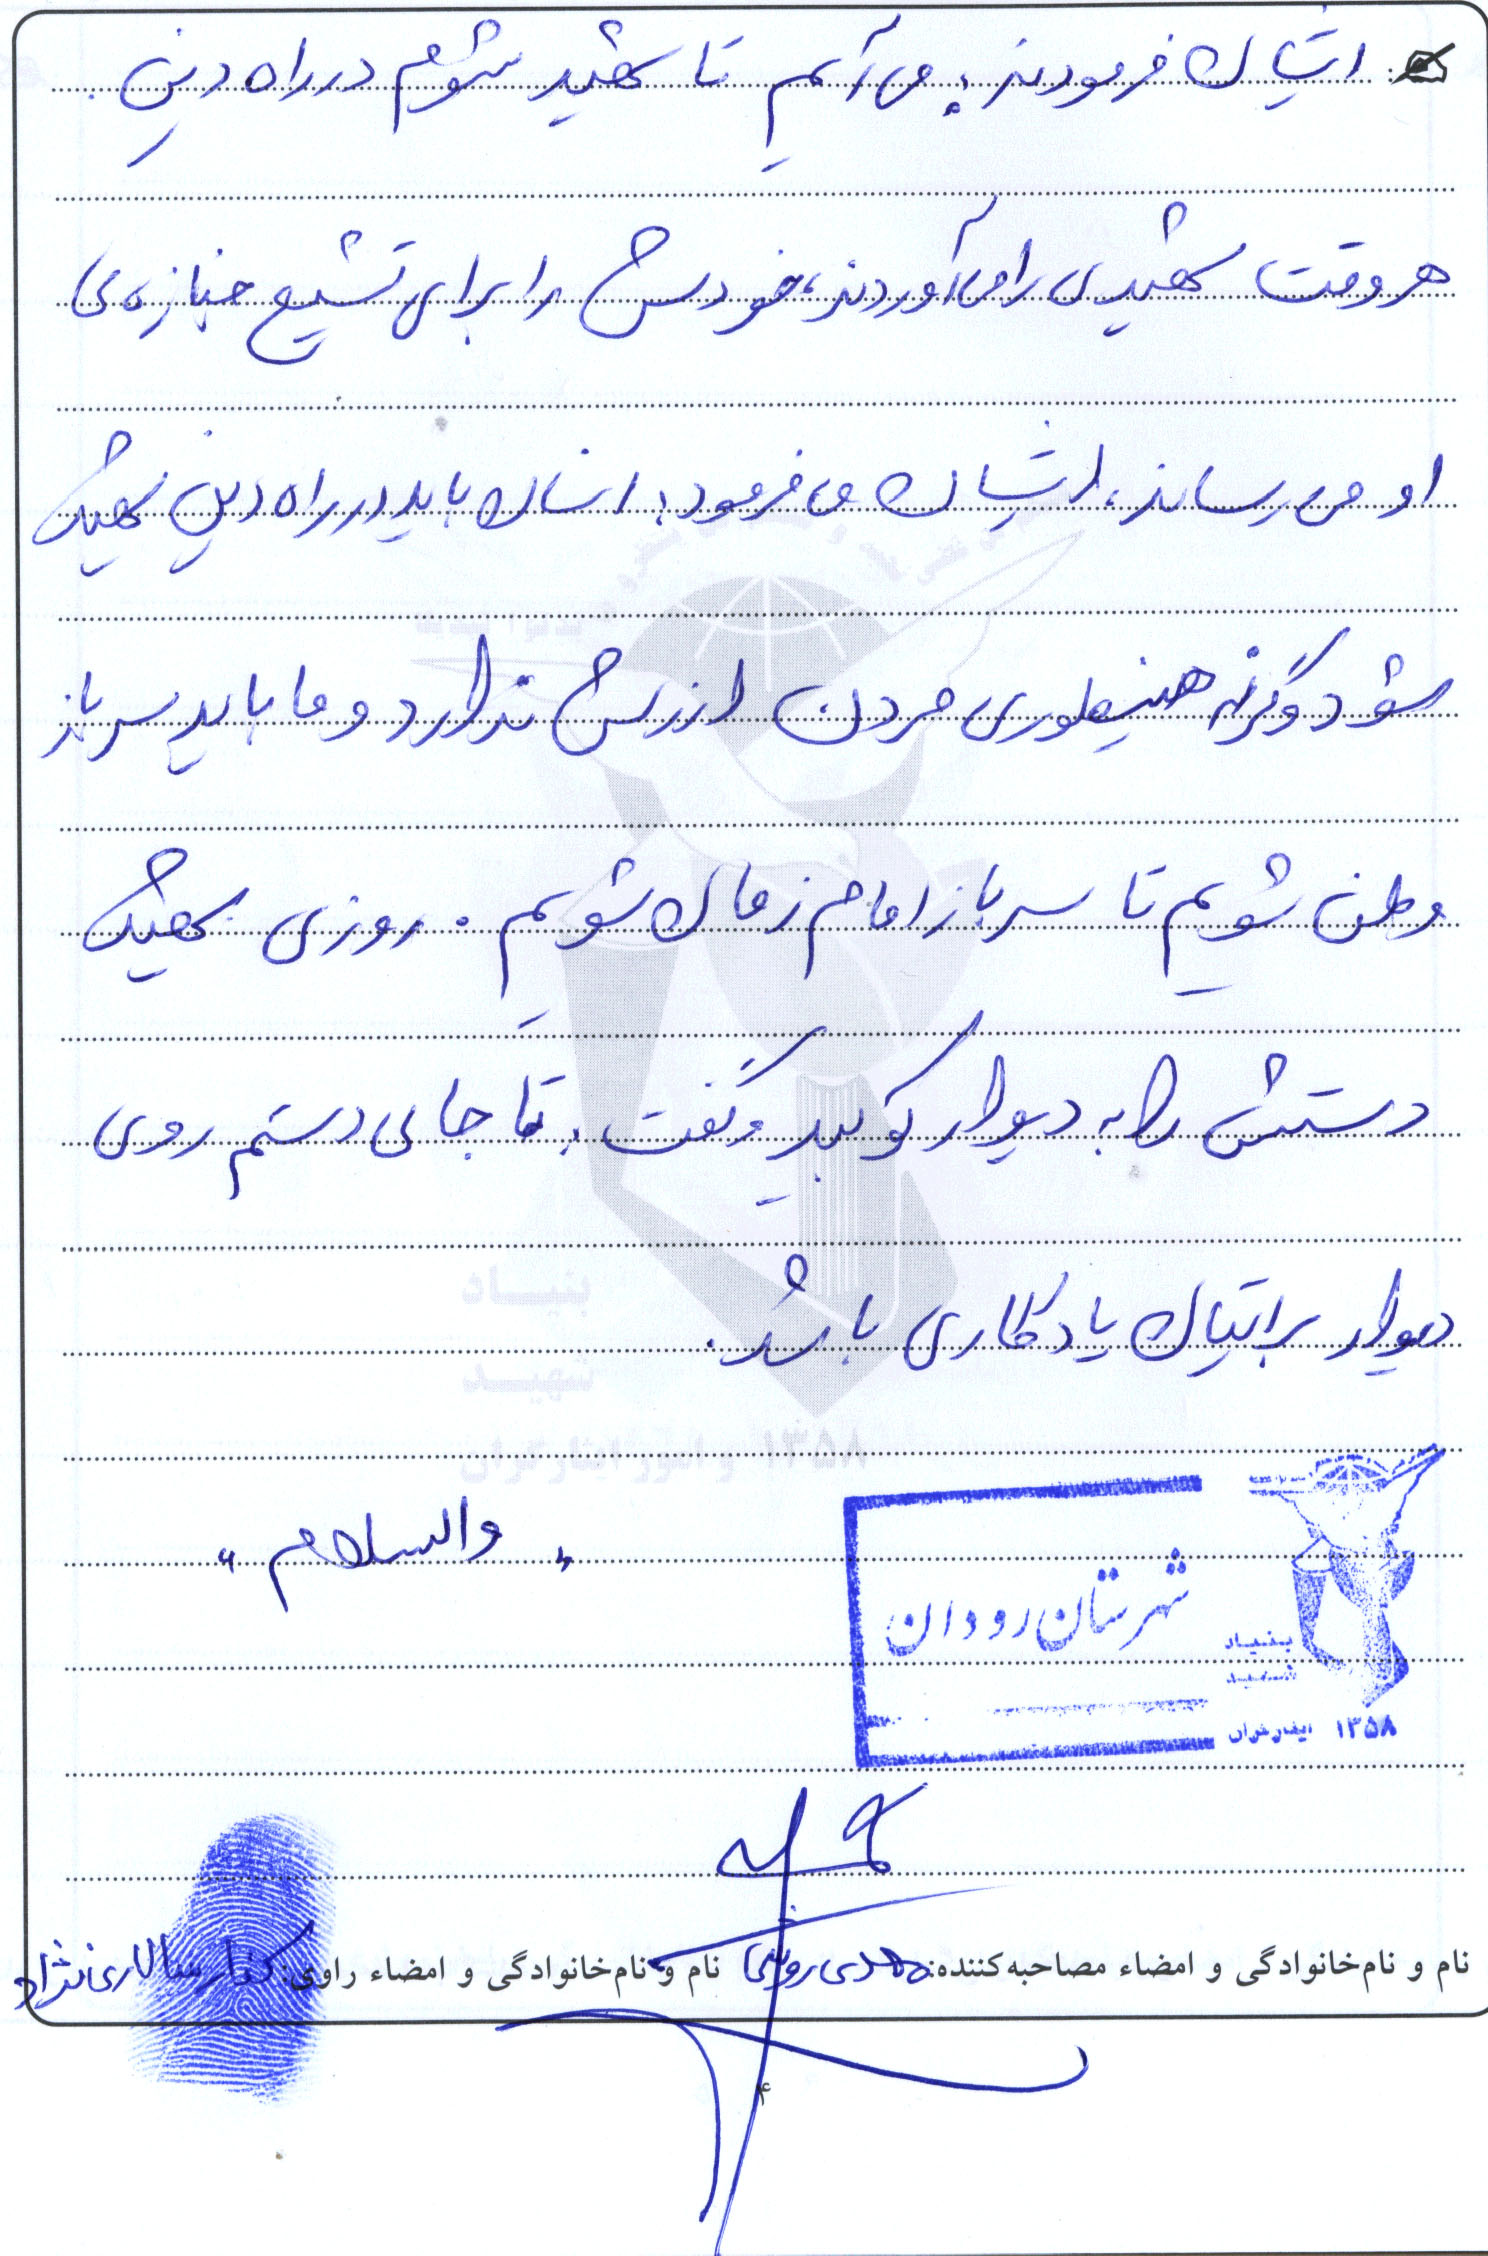 ایشان فرمودند: می‌آیم تا شهید شوم در راه دین.
هر وقت شهیدی را می‌آوردند، خودش را برای تشییع جنازه‌ی
او می‌رساند، ایشان می‌فرمود: انسان باید در راه دین شهید
شود وگرنه همینطوری مردن ارزش ندارد و ما باید سرباز
وطن شویم تا سرباز امام زمان شویم. روزی شهید
دستش را به دیوار کوبید و گفت: تا جای دستم روی
دیوار برایتان یادگاری باشد.
«والسلام»
شهرستان رودان
بنیاد
شهید
۱۳۵۸
بنیاد
شهید
و امور ایثارگران ۱۳۵۸
نام و نام‌خانوادگی و امضاء مصاحبه‌کننده: مهدی نام و نام‌خانوادگی و امضاء راوی: سالاری‌نژاد
۴